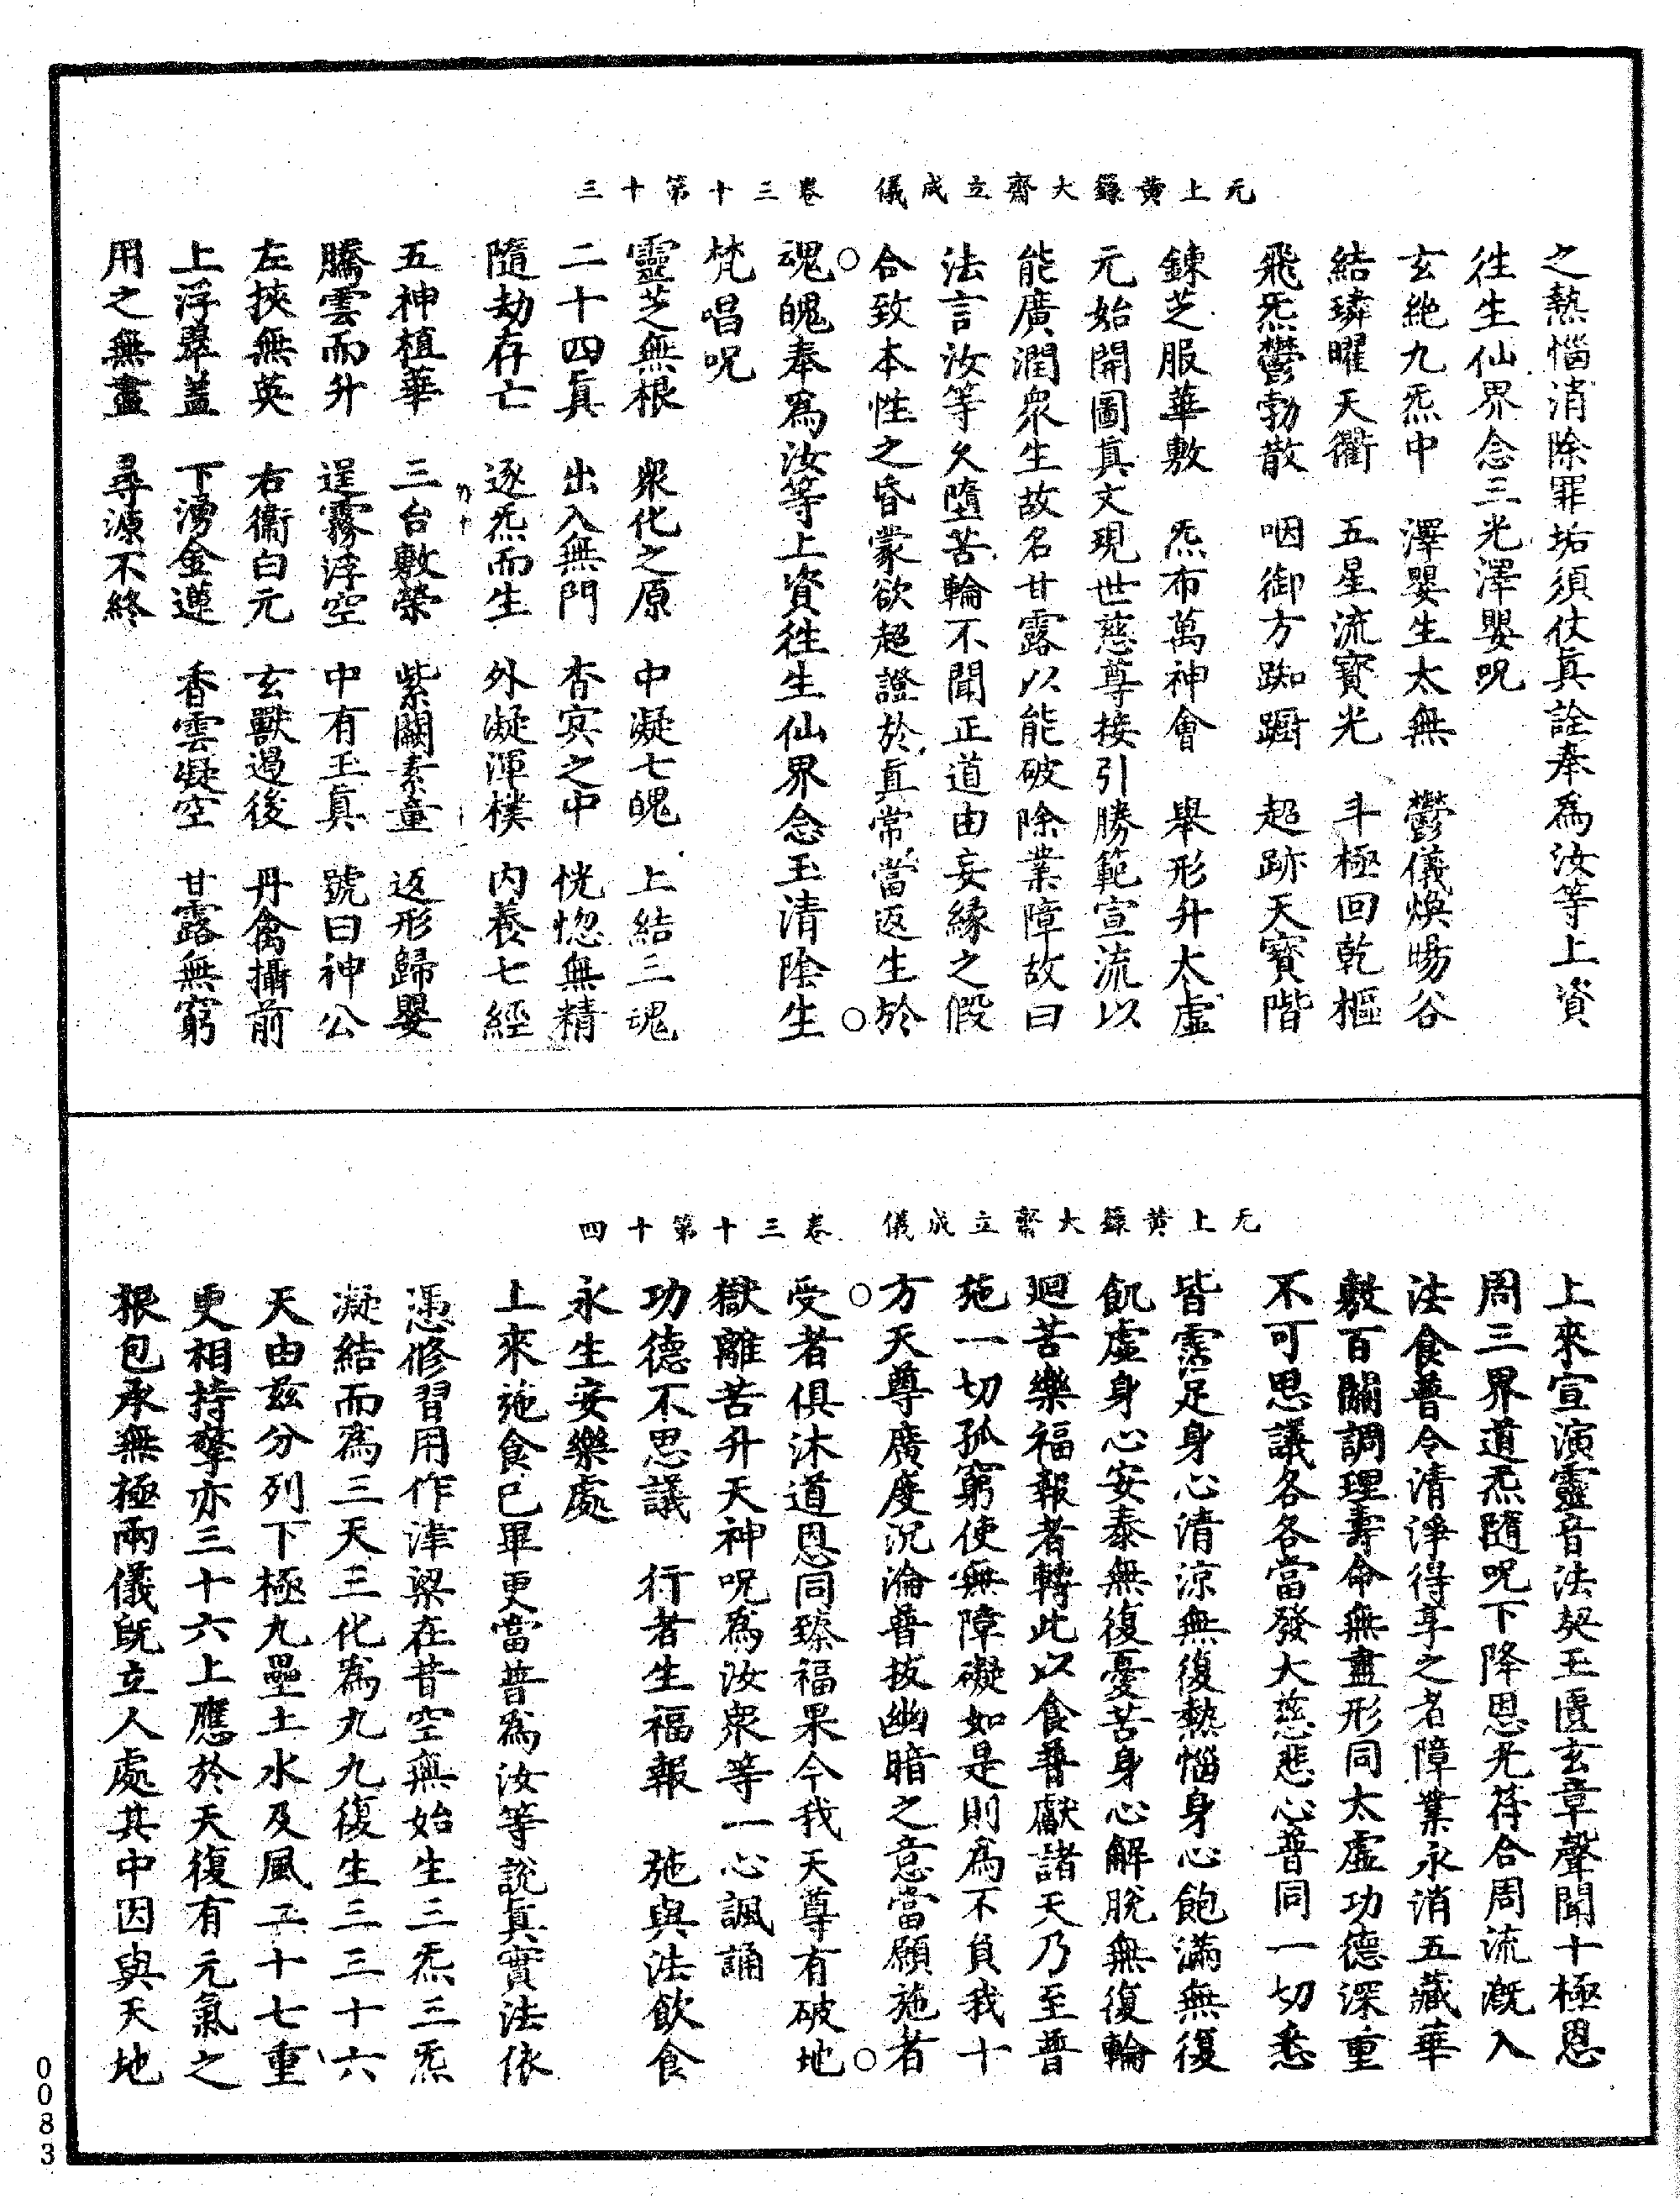 无上黄籙大齋立成儀　卷三十第十三
之熱惱消除罪垢須仗真詮奉爲汝等上資
徃生仙界念三光澤嬰呪
玄絶九炁中　澤嬰生太無　鬱儀煥暘谷
結璘曜天衢　五星流寳光　斗極回乾樞
飛炁鬱勃散　咽御方踟蹰　超跡天寳階
鍊芝服華敷　炁布萬神會　舉形升太虚
元始開圖真文現世慈尊接引勝範宣流以
能廣潤衆生故名甘露以能破除業障故曰
法言汝等久墮苦輪不聞正道由妄縁之假
合致本性之昏蒙欲超證於真常當返生於
魂魄奉爲汝等上資徃生仙界念玉清隂生
梵唱呪
靈芝無根　衆化之原　中凝七魄　上結三魂
二十四真　出入無門　杳冥之中　恍惚無精
隨劫存亡　逐炁而生　外凝渾樸　内養七經
五神植華　三台敷榮　紫闕素童　返形歸嬰
騰雲而升　逞霧浮空　中有玉真　號曰神公
左挾無英　右衞白元　玄獸遏後　丹禽攝前
上浮翠蓋　下湧金蓮　香雲凝空　甘露無窮
用之無盡　尋源不終
无上黄籙大齋立成儀　卷三十第十四
上來宣演靈音法契玉匱玄章聲聞十極恩
周三界道炁隨呪下降恩光符合周流溉入
法食普令清淨得享之者障業永消五藏華
敷百關調理壽命無盡形同太虚功德深重
不可思議各各當發大慈悲心普同一切悉
皆霑足身心清涼無復熱惱身心飽滿無復
飢虚身心安泰無復憂苦身心解脫無復輪
廻苦樂福報者轉此以食普獻諸天乃至普
施一切孤窮使無障礙如是則爲不負我十
方天尊廣度沉淪普拔幽暗之意當願施者
受者俱沐道恩同臻福果今我天尊有破地
獄離苦升天神呪爲汝衆等一心諷誦
功德不思議　行者生福報　施與法飲食
永生安樂處
上來施食已畢更當普爲汝等說真實法依
憑修習用作津梁在昔空無始生三炁三炁
凝結而爲三天三化爲九九復生三三十六
天由兹分列下極九壘土水及風二十七重
更相持擎亦三十六上應於天復有元氣之
根包承無極兩儀旣立人處其中因與天地
0083